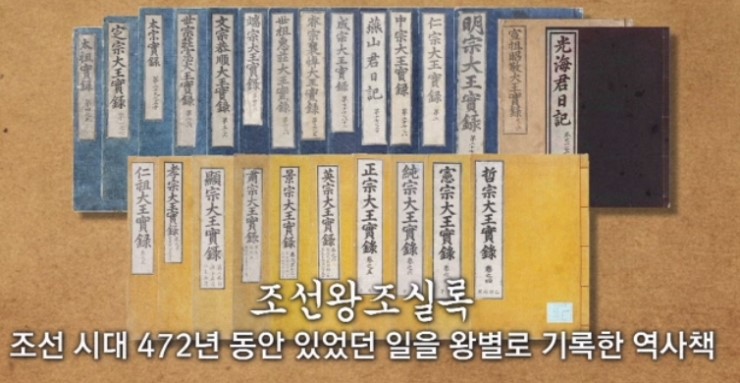 太祖實錄
定宗大王實錄
太宗實錄
世宗莊憲大王實錄
文宗恭順大王實錄
端宗大王實錄
世祖惠莊大王實錄
睿宗襄悼大王實錄
成宗大王實錄
燕山君日記
中宗大王實錄
仁宗大王實錄
明宗大王實錄
宣祖昭敬大王實錄
光海君日記
仁祖大王實錄
孝宗大王實錄
顯宗大王實錄
肅宗大王實錄
景宗大王實錄
英宗大王實錄
正宗大王實錄
純宗大王實錄
憲宗大王實錄
哲宗大王實錄
조선왕조실록
조선 시대 472년 동안 있었던 일을 왕별로 기록한 역사책